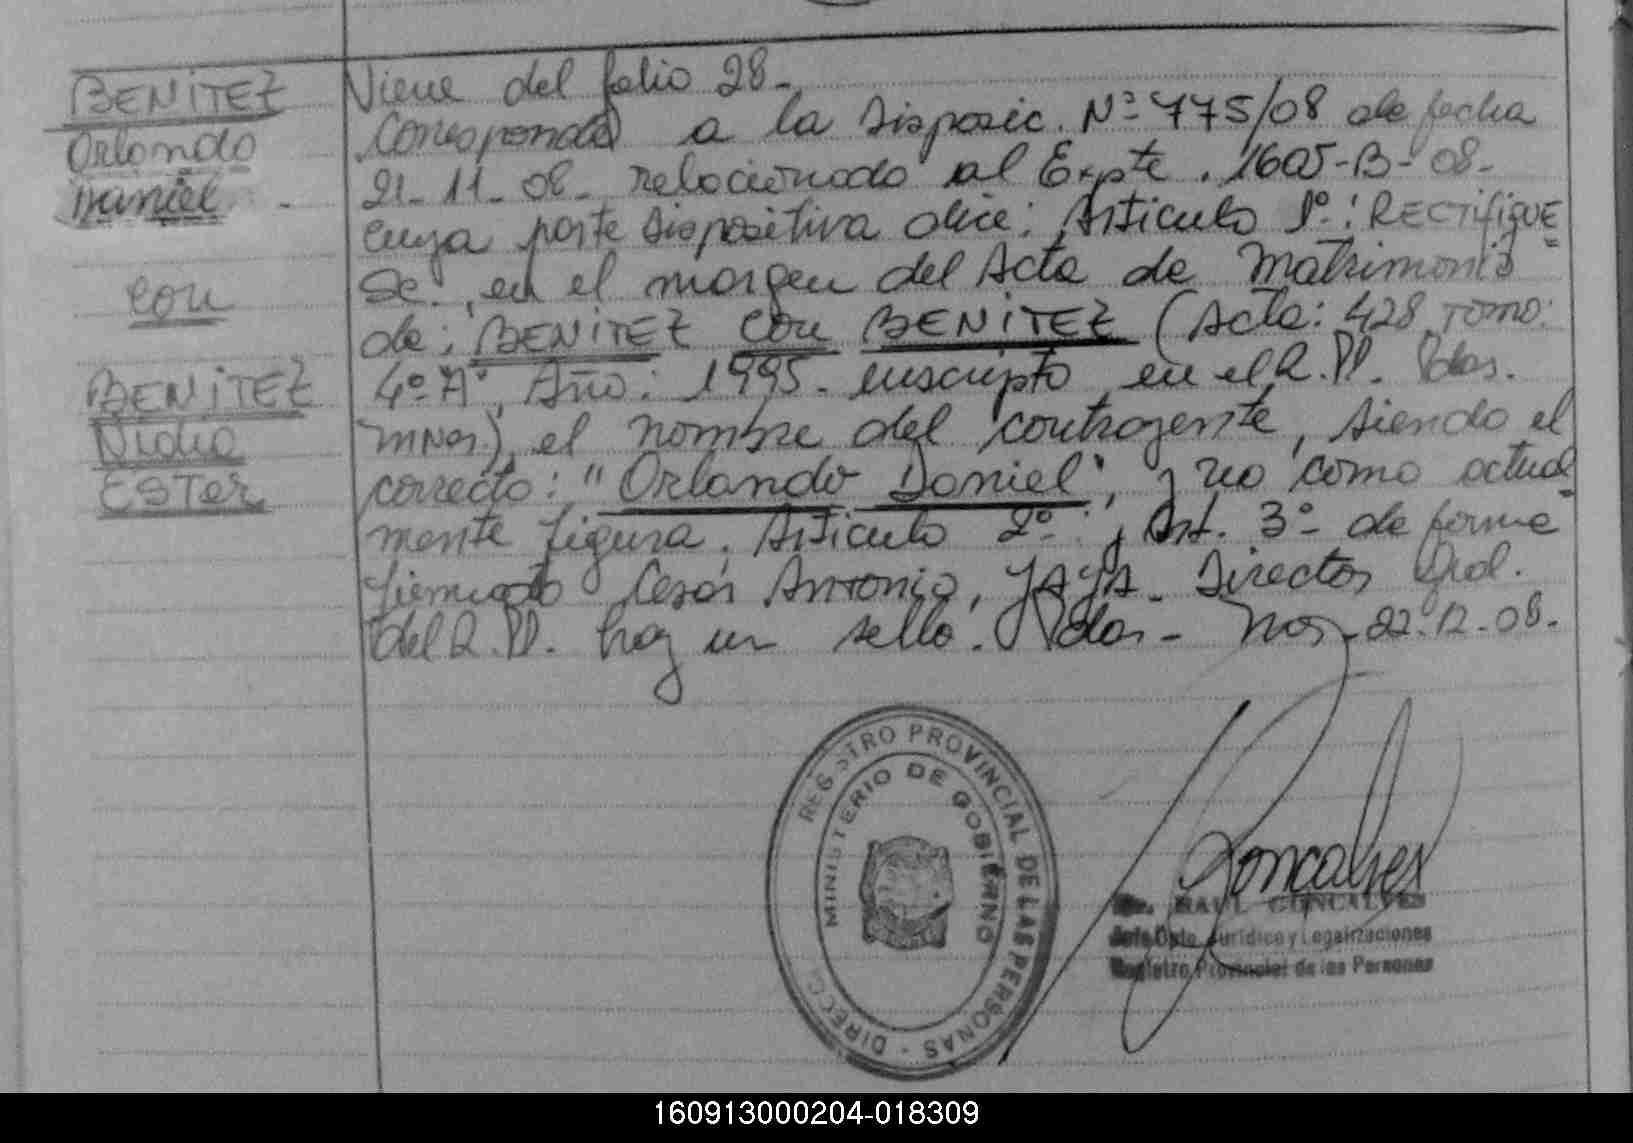 BENITEZ
Orlando
Daniel
con
BENITEZ
Nidia
ESTer
Viene del folio 28.-
Corresponde a la Disposic. Nº 775/08 de fecha
21-11-08- relacionado al Expte. 1605-B-08-
cuya parte Dispositiva dice: Articulo 1º: RECTIFIQUE=
Se, en el margen del Acta de Matrimonio
de: BENITEZ con BENITEZ (Acta: 428 Tomo:
4º"A", Año: 1995- inscripto en el R.PP. Pdas.
MNES), el nombre del contrayente, siendo el
correcto: "Orlando Daniel", y no como actual=
mente figura. Articulo 2º y Art. 3º- de forma
firmado Cesar Antonio, YAYA- Director Gral.
del R.PP. hay un sello. Pdas- Mnes-22-12-08-
DIRECC. REGISTRO PROVINCIAL DE LAS PERSONAS -
MINISTERIO DE GOBIERNO
Goncalves
RAUL GONCALVES
Jefe Dpto. Jurídico y Legalizaciones
Registro Provincial de las Personas
160913000204-018309